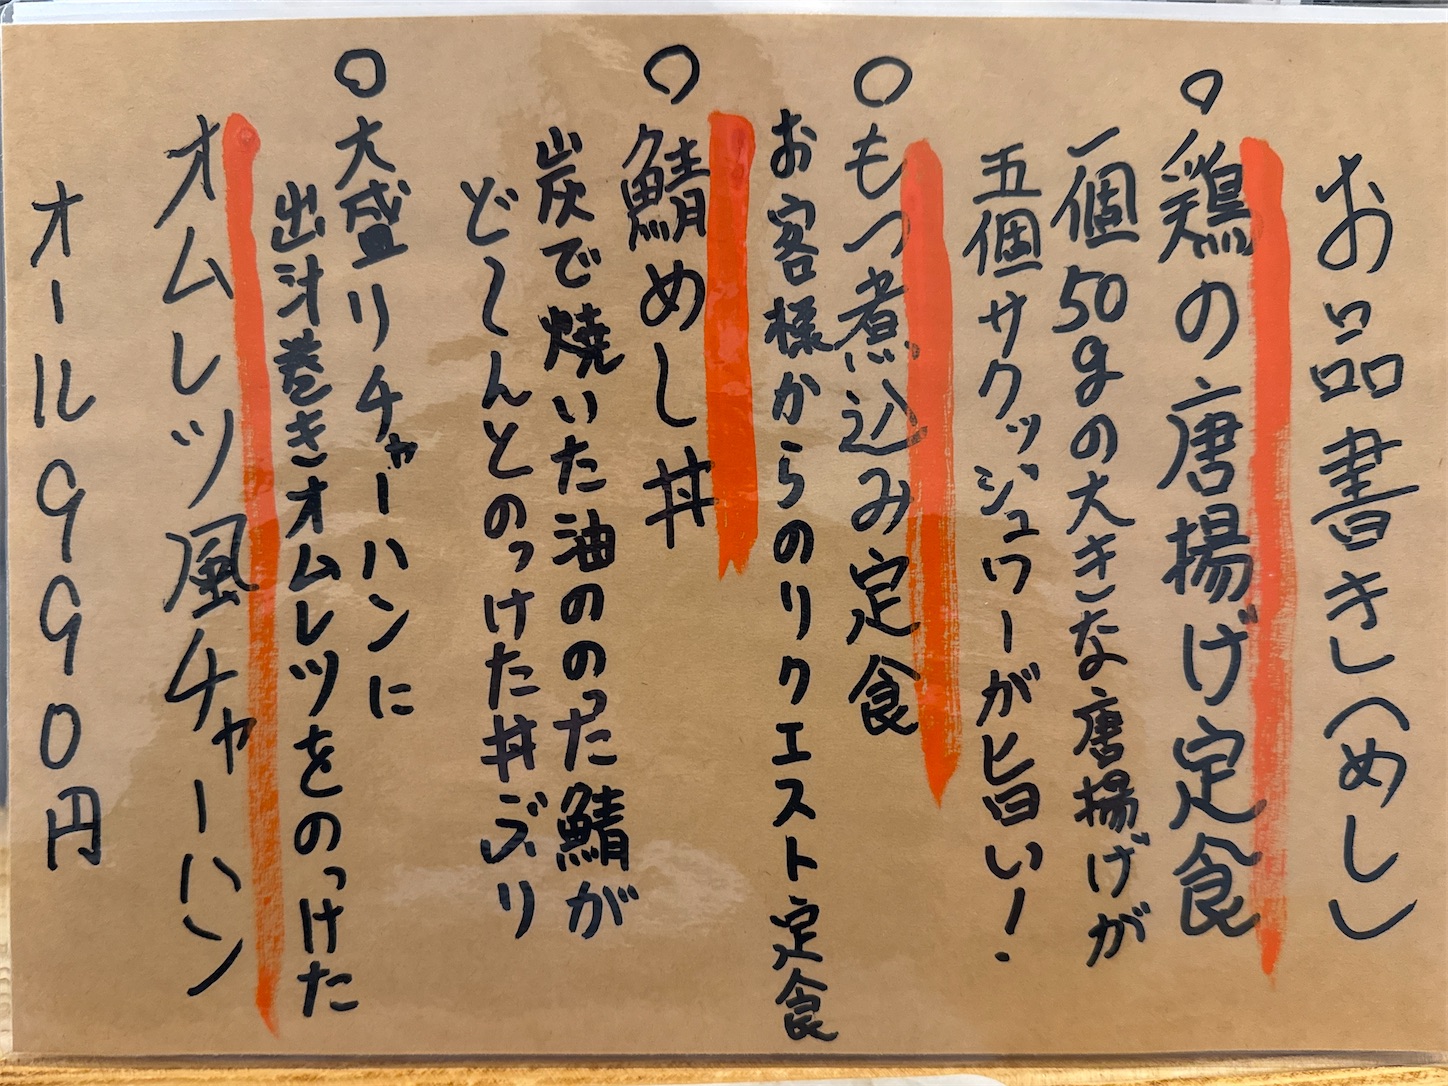 お品書き(めし)
○鶏の唐揚げ定食
一個50gの大きな唐揚げが
五個サクッジュワーが旨い!
○もつ煮込み定食
お客様からのリクエスト定食
○鯖めし丼
炭で焼いた油ののった鯖が
ど〜んとのっけた丼ぶり
○大盛りチャーハンに
出汁巻きオムレツをのっけた
オムレツ風チャーハン
オール990円